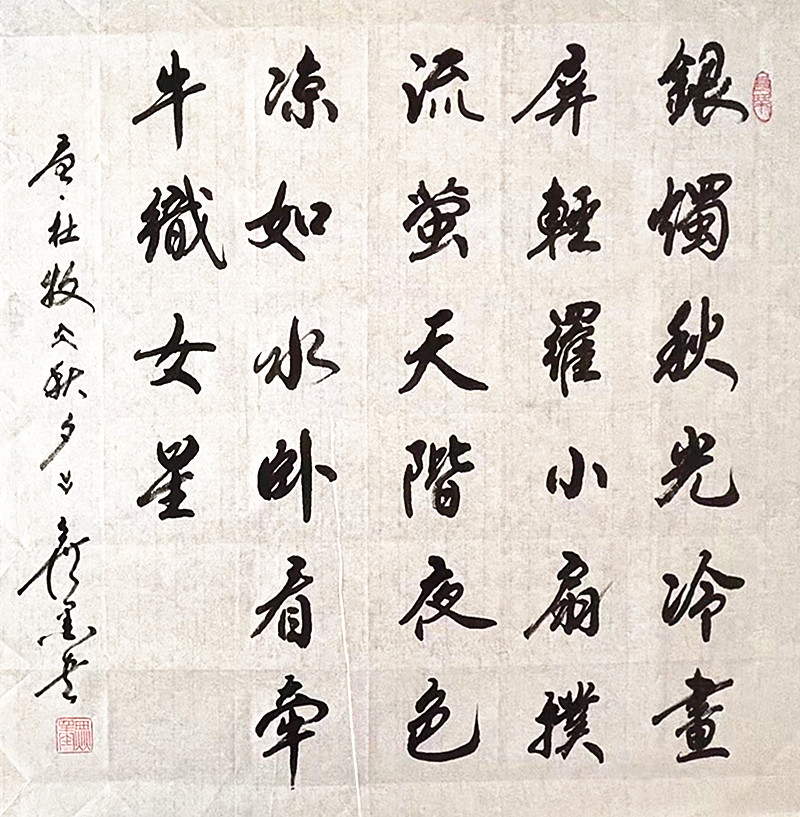 銀燭秋光冷畫
屏輕羅小扇撲
流萤天階夜色
凉如水卧看牽
牛織女星
唐·杜牧《秋夕》